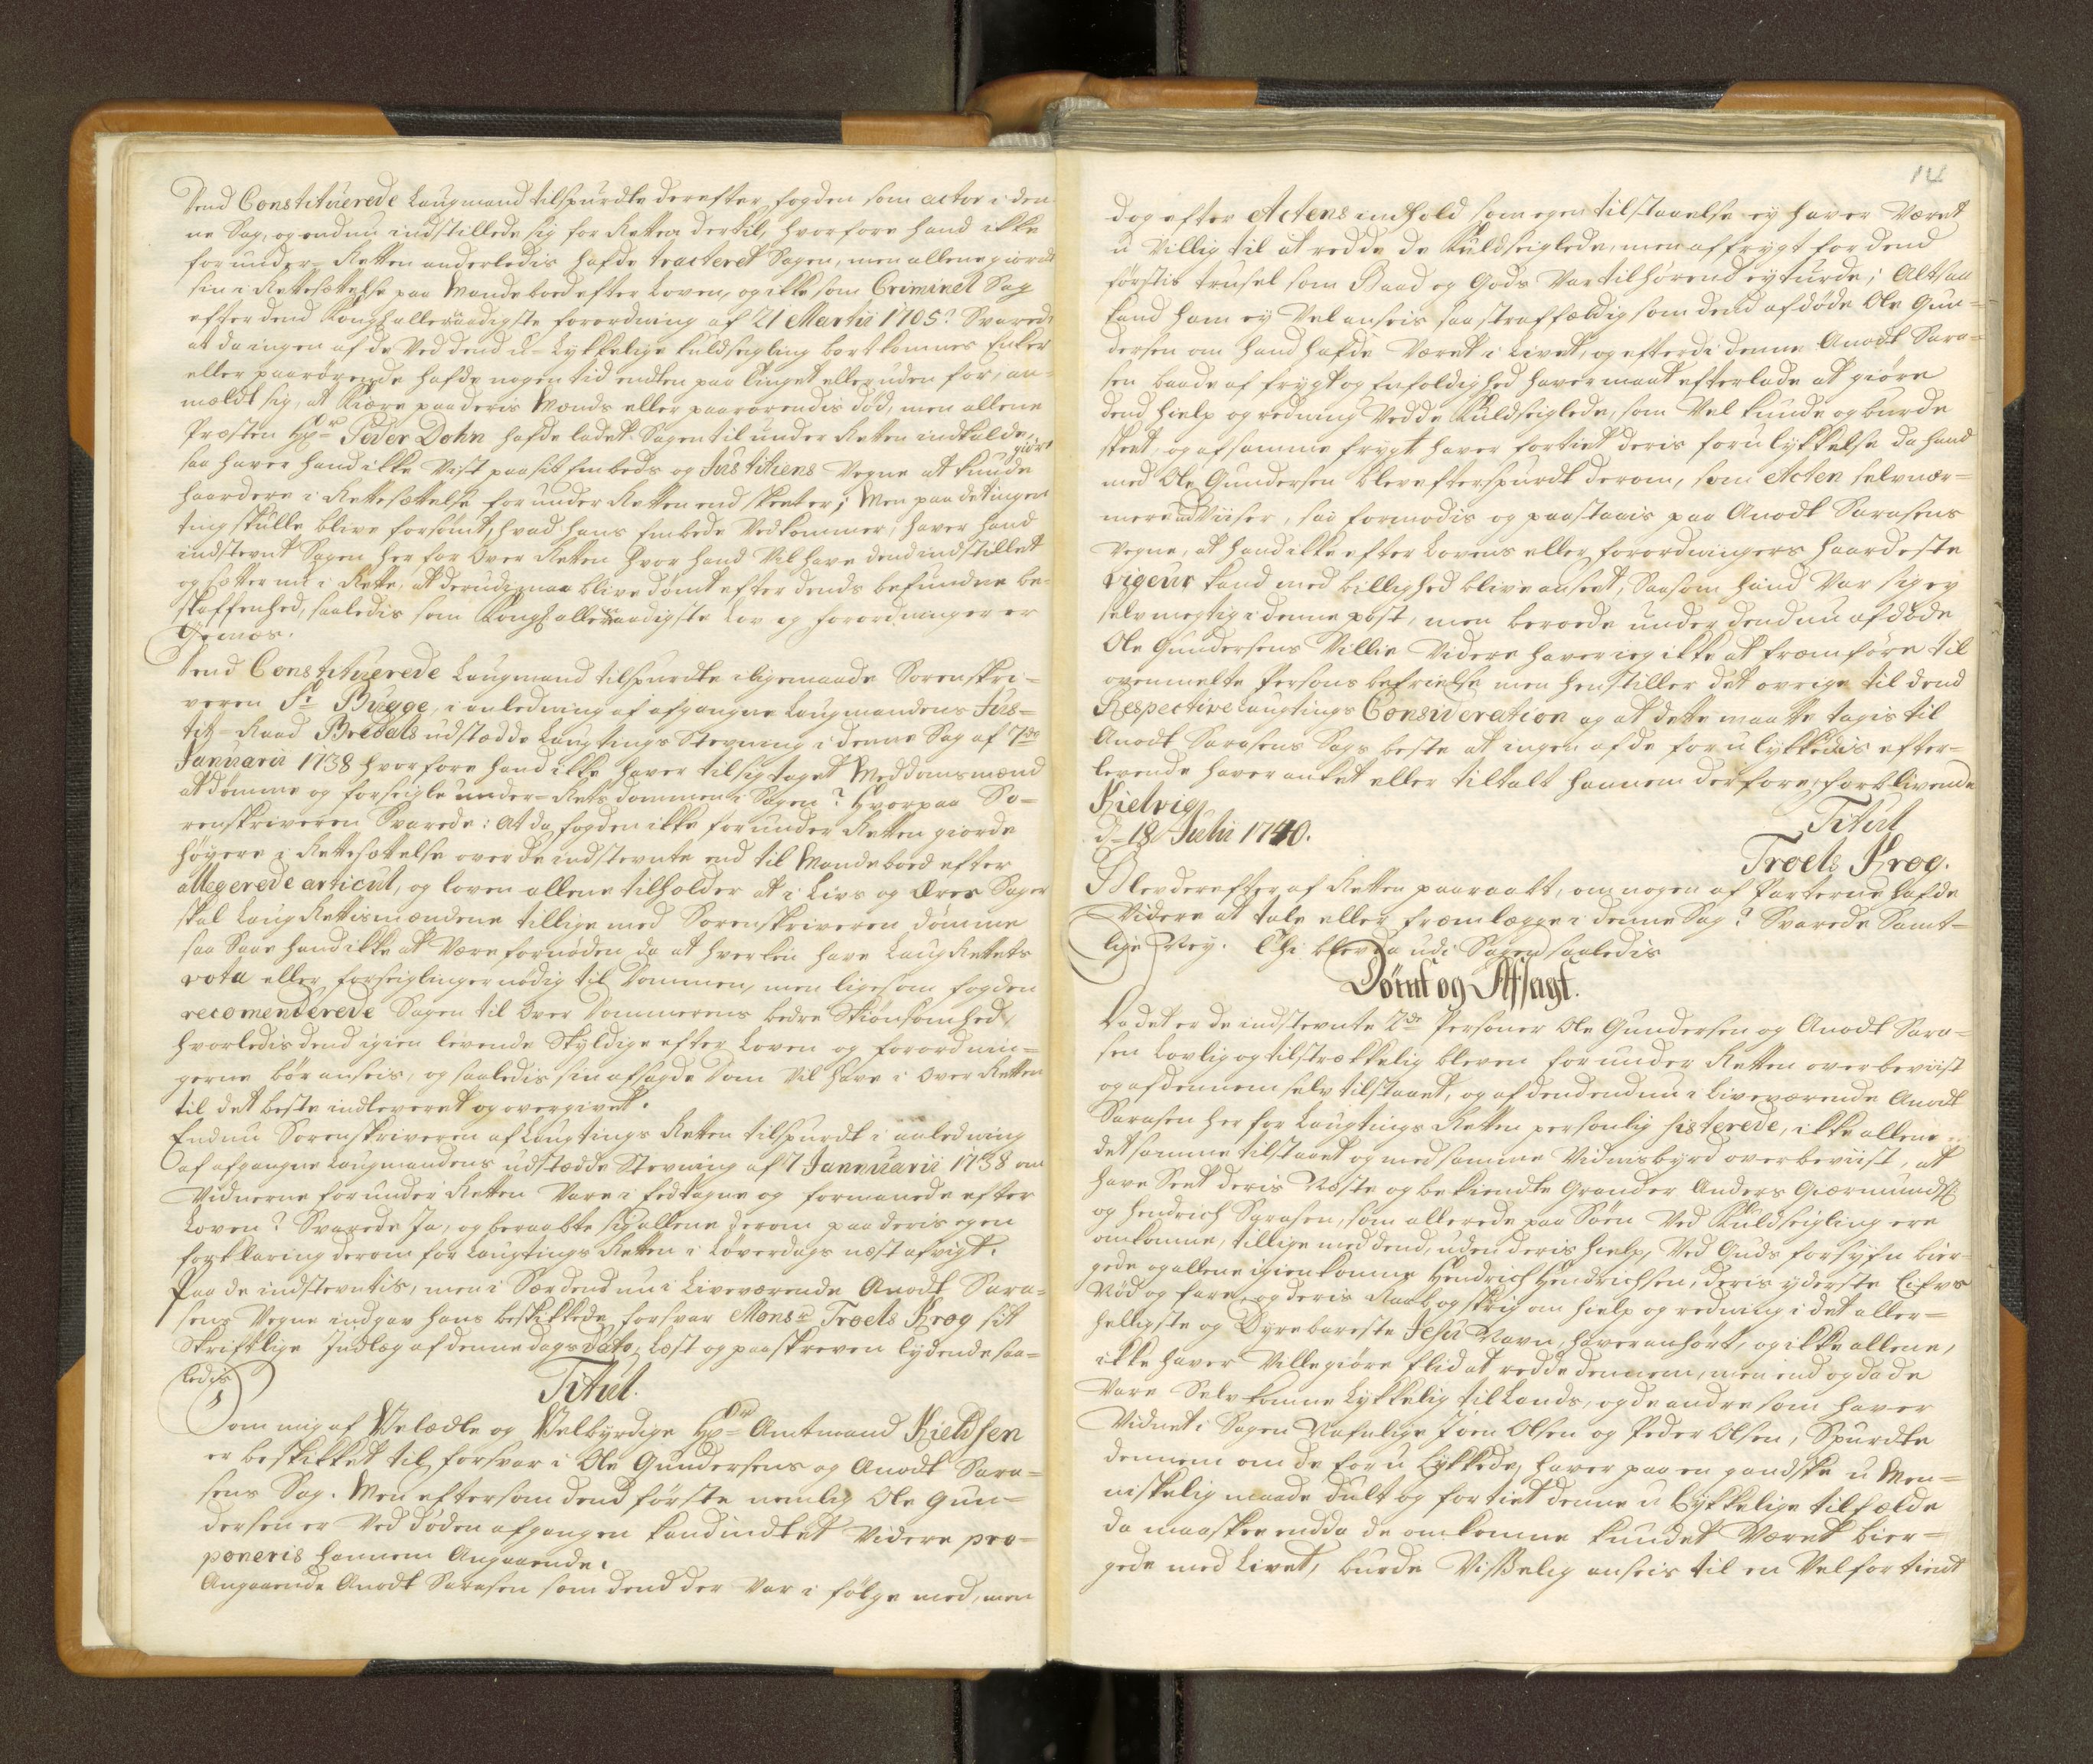 Dend Constituerede Laugmand tilspurdte derefter fogden som actor i den¬
ne Sag, og endnu indstillede sig for Retten dertil, hvorfore hand ikke
for under-Retten anderledis hafde tracteret Sagen, men allene giordt
sin i Rettesættelse paa Mandebood efter Loven, og ikke som Criminel Sag
efter dend Kongl allernaadigste forordning af 21 Martii 1705? Svarede
at da ingen af de ved dend u-Lykkelige kuldseigling bortkomnes Enker
eller paarørende hafde nogen tid enten paa Tinget eller uden for, an¬
meldt sig, at Kiære paa deris Mænds eller paarørendis død, men allene
Præsten Hr Peder Dohn hafde ladet Sagen til under Retten indkalde,
saa haver hand ikke vist paa sit Embeds og Justitiens vegne at kunde giort
haardere i Rettesættelse for under Retten end skeet er; Men paa det ingen
ting skulle blive forsømt, hvad hans Embede vedkommer, haver hand
indstevnt Sagen her for Over Retten hvor hand vil have dend indstillet
og sætter nu i Rette, at derudj maa blive dømt efter dends befundne be¬
skaffenhed, saaledis som Kongl allernaadigste Lov og forordninger er
Gemæs.
Dend Constituerede Laugmand tilspurdte iligemaade Sorenskri¬
veren Sr Bugge, i anledning af afgangne Laugmandens Jus¬
tiz-Raad Bredals udstædde Laugtings Stevning i denne Sag af 7de
Januarii 1738 hvorfore hand ikke haver til sig taget Meddomsmænd
at dømme og forseigle under-Rets dommen i Sagen? Hvorpaa So¬
renskriveren Svarede: At da fogden ikke for under Retten giorde
høyere i Rettesættelse over de indstevnte end til Mandebood efter
allegerede articul, og loven allene tilholder at i Livs og Æres Sager
skal Laug Rettismændene tillige med Sorenskriveren dømme
saa Saae hand ikke at være fornøden da at hverken have Laug Rettets
vota eller forseiglinger nødig til Dommen, men ligesom fogden
recomenderede Sagen til Over Dommerens bedre Skiønsomhed,
hvorledis dend igien levende Skyldige efter Loven og forordnin¬
gerne bør anseis, og saaledis sin afsagde Dom vil have i Over Retten
til det beste indleveret og overgivet.
Endnu Sorenskriveren af Laugtings Retten tilspurdt i anledning
af afgangne Laugmandens udstædde Stevning af 7 Jannuarii 1738 om
Vidnerne for under Retten vare i Eed tagne og formanede efter
Loven? Svarede Ja, og beraabte sig allene derom paa deris egen
forklaring derom for Laugtings Retten i Løverdags næst afvigt.
Paa de indstevntis, men i Sær dend nu i Liveværende Anodt Sara¬
sens Vegne indgav hans beskikkede forsvar Monsr Troels Krog sit
Skriftlige Indlæg af denne dags Dato, Læst og paaskreven lydende saa¬
ledis
Titul.
Som mig af Velædle og Velbyrdige Hr Amtmand Kieldsen
er beskikket til forsvar i Ole Gundersens og Anodt Sara¬
sens Sag. Men eftersom dend første nemlig Ole Gun¬
dersen er ved døden afgangen kand indtet videre pro¬
poneris hannem Angaaende.
Angaaende Anodt Sarasen som dend der var i følge med, men
14
dog efter Actens indhold som egen tilstaaelse ej haver været
u villig til at redde de kuldseiglede, men af frygt for dend
førstis trusel som Baad og Gods var tilhørend ey turde; Altsaa
kand ham ey vel anseis saa straffældig som dend afdøde Ole Gun¬
dersen om hand hafde været i Livet, og efterdi denne Anodt Sara¬
sen baade af frygt og Enfoldighed haver maat efterlade at giøre
dend hielp og redning ved de kuldseiglede, som vel kunde og burde
skeet, og af samme frygt haver fortiet deris forulykkelse da hand
med Ole Gundersen blev efterspurdt derom, som Acten selv nær¬
mere udviiser, saa formodis og paastaais paa Anodt Sarasens
vegne, at hand ikke efter Lovens eller forordningers haardeste
vigeur kand med billighed blive anseet, Saasom hand var sig ey
selv megtig i denne post, men beroede under dend nu afdøde
Ole Gundersens villie Videre haver ieg ikke at fremføre til
ovenmelte Persons befrielse men henstiller det øvrige til dend
Respective Laugtings Consideration og at dette maatte tagis til
Anodt Sarasens Sags beste at ingen af de forulykkedis efter¬
levende haver anket eller tiltalt hannem derfore, forblivende
Kielvig
d- 18 Julii 1740.
Titul
Troels Krog.
Blev derefter af Retten paaraabt, om nogen af Parterne hafde
videre at tale eller fremlægge i denne Sag? Svarede Samt¬
lige Ney. Thi blev da udi Sagen saaledis
Dømt og Afsagt.
Da det er de indstevnte 2de Personer Ole Gundersen og Anodt Sara¬
sen Lovlig og tilstrækkelig bleven for under Retten overbeviist
og af dennem selv tilstaaet, og af dend end nu i Liveværende Anodt
Sarasen her for Laugtings Retten personlig sisterede, ikke allene
det samme tilstaaet og med samme Vidnisbyrd overbeviist, at
have Seet deris Næste og bekiendte Grander Anders Giermunds
og Hendrich Sarasen, som allerede paa Søen ved kuldseigling ere
omkomne, tillige med dend, uden deris hielp, ved Guds forsyn bier¬
gede og allene igien komne Hendrich Hendrichsen, deris yderste Lifvs
Nød og fare, og deris Raab og skrig om hielp og redning i det aller¬
helligste og Dyrebareste Jesu Navn, haver anhørt, og ikke allene,
ikke haver ville giøre flid at redde dennem, men end og da de
vare Selv komne Lykkelig til Lands, og de andre som haver
Vidnet i Sagen Nafnlige Joen Olsen og Peder Olsen, Spurdte
dennem om de for u Lykkede, haver paa en gandske u Men¬
niskelig maade dult og fortiet denne u Lykkelige tilfælde
da maaskee endda de omkomne kundet været bier¬
gede med Livet, burde visselig anseis til en velfortient